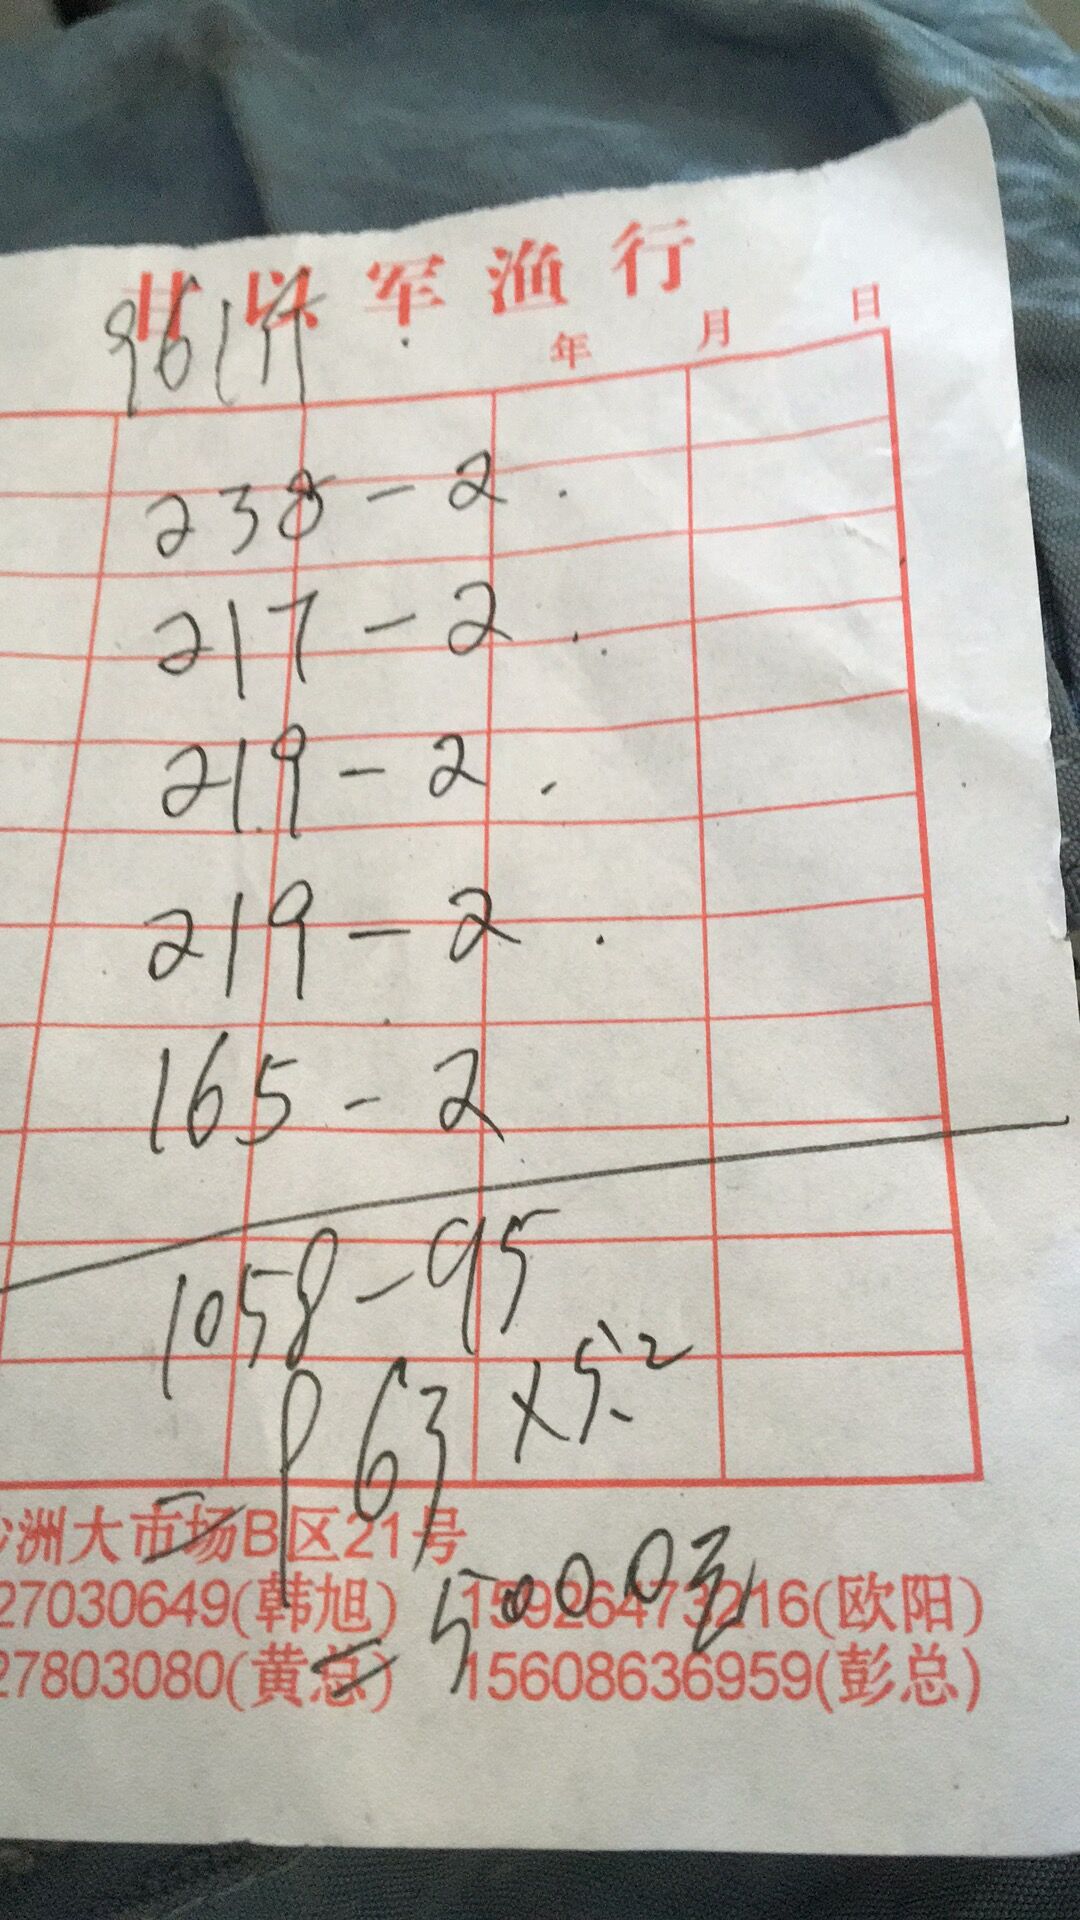 甘以军渔行
961斤
年 月 日
238-2
217-2
219-2
219-2
165-2
1058-95
963×5.2
洲大市场B区21号
=5000元
27030649(韩旭) 15926473216(欧阳)
27803080(黄总) 15608636959(彭总)